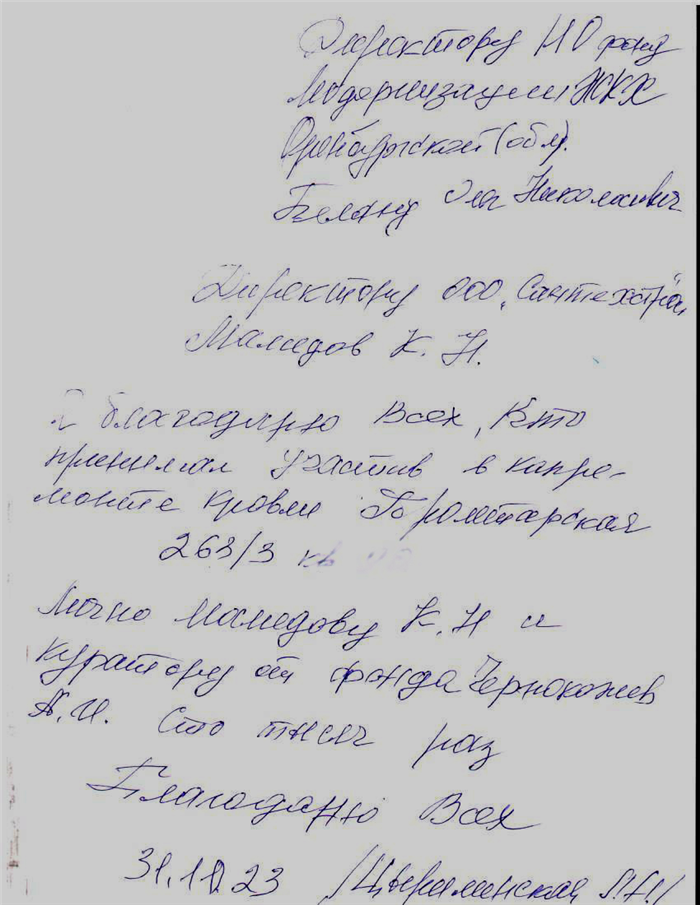 Директору НО фонд
Модернизации ЖКХ
Оренбургской (обл).
Белану Олег Николаевич
Директору ООО „Сантехстрой
Мамедов К. Н.
Я благодарю Всех, Кто
принимал участив в капре-
монте кровли Пролетарская
263/3 кв
Лично Мамедову К. Н и
куратору от фонда Чернокожев
А.И. Сто тысяч раз
Благоданю Всех
23